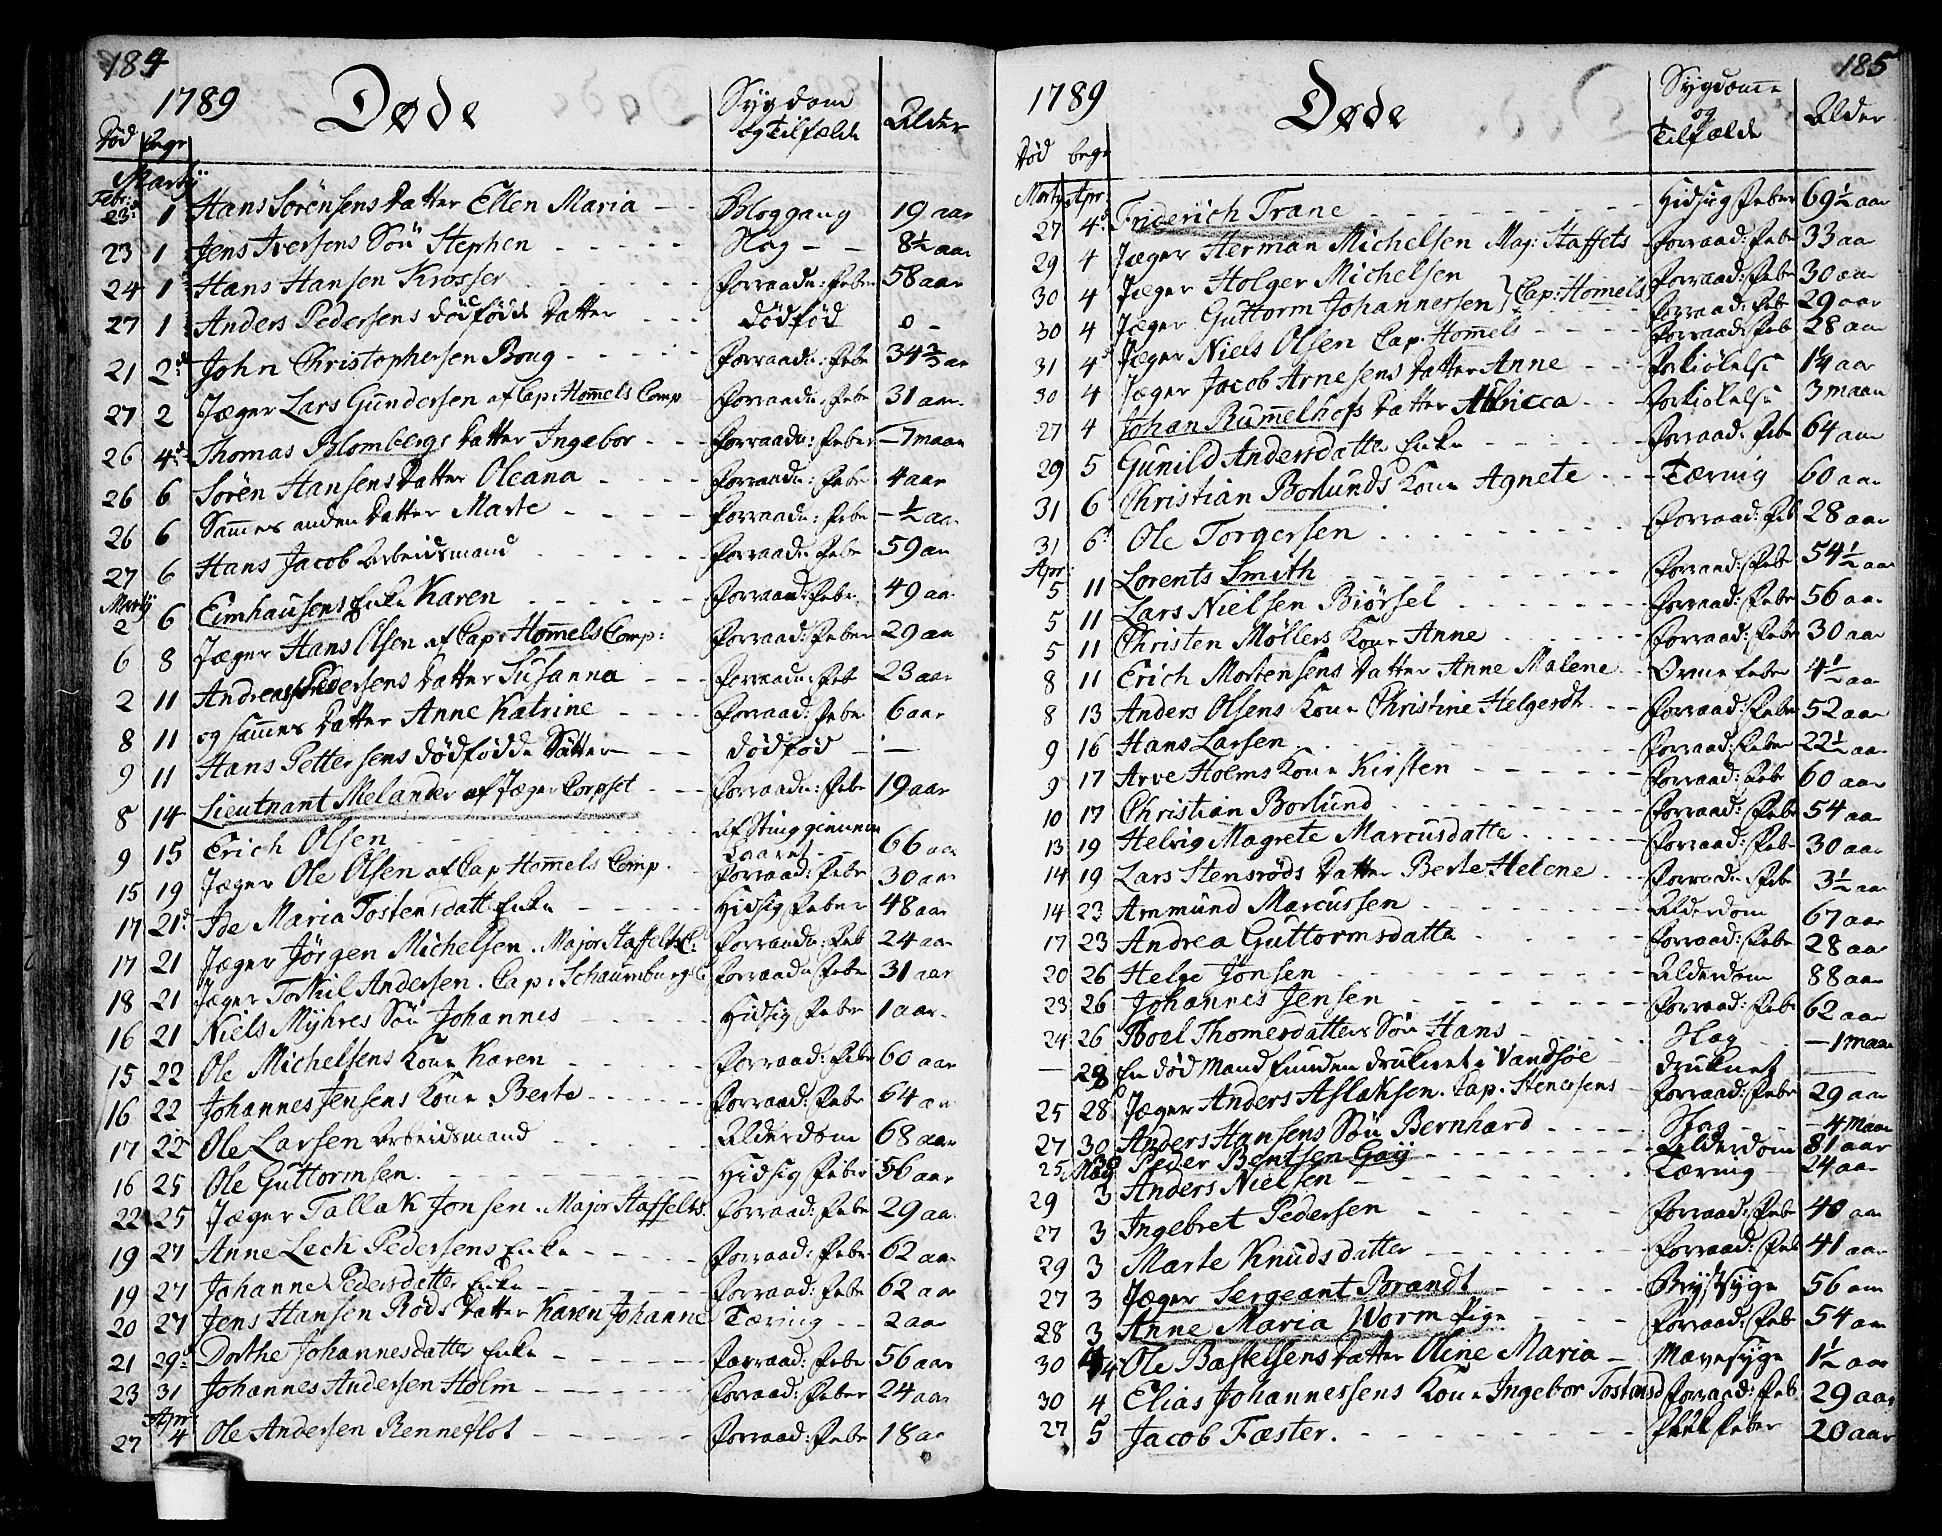 184
1789 Døde Sygdom og Tilfælde Alder
Død Begr
Martij
Febr: 23: 1 Hans Sörensens Datter Ellen Maria - - Bloggang 19 aar
23 1 Jens Iversens Sön Stephen - - - - - Slag - - 8½ aar
24 1 Hans Hansen Krosser - - - - - Forraadn: Feber 58 aar
27 1 Anders Pedersens dödfödde Datter - - - dödföd 0 -
21 2d John Christophersen Boug - - - - - Forraadn: Febe 34 2/3 aar
27 2 Jæger Lars Gundersen af Cap: Homels Comp Forraadn: Febe 31 aar
26 4d Thomas Blombergs Datter Ingebor - - - Forraadn: Feber - 7 maan
26 6 Sören Hansens Datter Oleana - - - - Forraadn: Febe 4 aar
26 6 Sammes anden Datter Marte - - - - Forraadn: Febe - ½ aar
27 6 Hans Jacob Arbeidsmand - - - - - Forraadn Febe 59 aar
Martij 2 6 Eimhausens Enke Karen - - - - - Forraadn: Febe 49 aar
6 8 Jæger Hans Olsen af Cap: Homels Comp: Forraad: Feber 29 aar
2 11 Andreas Pedersens Datter Susanna - - - Forraadn: Feb 23 aar
8 11 og sammes Datter Anne Katrine - - - - Forraad: Febe 6 aar
9 11 Hans Pettersens dödfödde Datter - - - dödföd - -
8 14 Lieutnant Melander af Jæger Corpset - - Forraadn: Febe 19 aar
9 15 Erich Olsen - - - - - Af Sting giennem Laaret - - 66 aar
15 19 Jæger Ole Olsen af Cap Homels Comp. Forraad: Febe 30 aar
17 21d Ide Maria Tostensdatt Enke - - - - Hidsig Feber 48 aar
17 21 Jæger Jörgen Michelsen. Major Staffelts C: Forraadn: Feb 24 aar
18 21 Jæger Torkil Andersen. Cap: Schaumburg C Forraadn Febe 31 aar
16 21 Niels Myhres Sön Johannes - - - - Hidsig Feber 1 aar
15 22 Ole Michelsens Kone Karen - - - - - Forraad: Febe 60 aar
16 22 Johannes Jensens Kone Berte - - - - - Forraad: Febe 64 aar
17 22 Ole Larsen Arbeidsmand - - - - - Alderdom 68 aar
16 25 Ole Guttormsen. - - - - - Hidsig Feber 56 aar
22 25 Jæger Tallak Jonsen. Major Staffelts. Forraad: Febe 29 aar
19 27 Anne Leck Pedersens Enke - - - - - Forraad: Febe 62 aar
19 27 Johanne Pedersdatter Enke - - - - - Forraad: Febe 62 aar
20 27 Jens Hansen Röds Datter Karen Johanne Tæring - - 2 aar
21 29d Dorthe Johannesdatter Enke - - - - - Forraad: Febe 56 aar
23 31 Johannes Andersen Holm - - - - - Forraad: Feber 24 aar
Apr
27 4 Ole Andersen Renneflot - - - - - Forraad: Febe 18 aar
185
1789 Døde Sygdomme og Tilfælde Alder
Død begr
Martij Apr:
27 4d Friderich Trane - - - - - Hidsig Feber 69½ aar
29 4 Jæger Herman Michelsen Maj: Staffets Forraad: Febe 33 aar
30 4 Jæger Holger Michelsen } Cap: Homels Forraad: Febe 30 aar
30 4 Jæger Guttorm Johannersen Forraad: Febe 29 aar
31 4d Jæger Niels Olsen Cap. Homels - - - - Forraad: Feb 28 aar
30 4 Jæger Jacob Arnesens Datter Anne - - - Forkiölelse 14 aar
27 4 Johan Rummelhofs Datter Ulricca - - Forkiölelse 3 maan
29 5 Gunild Andersdatter Enke - - - - - Forraad: Feb 64 aar
31 6 Christian Borlunds Kone Agnete - - - Tæring 60 aar
31 6d Ole Torgersen - - - - - Forraad: Feb 28 aar
Apr:
5 11 Lorents Smith - - - - - Forraad: Febe 54½ aar
5 11 Lars Nielsen Biörsel - - - - - Forraad: Febe 56 aar
5 11 Christen Möllers Kone Anne - - - - - Forraad: Febe 30 aar
8 11 Erich Mortensens Datter Anne Malene - Orme feber 4½ aar
8 13 Anders Olsens Kone Christine Helgerdt - - Forraad: Febe 52 aar
9 16 Hans Larsen - - - - - Forraad: Febe 22½ aar
9 17 Arve Holms Kone Kirsten - - - - - Forraad: Feb 60 aar
10 17 Christian Borlund - - - - - Forraad: Febe 54 aar
13 19 Helvig Magrete Marcusdatte - - - - - Forraad: Feb 30 aar
14 19 Lars Stensröds Datter Berte Helene - - Forraadn Feb 3½ aar
14 23 Ammund Marcussen - - - - - Alderdom 67 aar
17 23 Andrea Guttormsdatte - - - - - Forraad: Febe 28 aar
20 26 Helge Jonsen - - - - - Alderdom 88 aar
23 26 Johannes Jensen - - - - - Forraad: Febe 62 aar
24 26 Boel Thomesdatters Sön Hans - - - - Slag - 1 maan
- 28 En död Mand funden druknet i Vandsöe - druknet -
25 28 Jæger Anders Aslaksen. Cap. Stenersens - Forraad: Febe 29 aar
27 30 Anders Hansens Sön Bernhard - - - - - Slag - - 4 maan
25 Peder Bentsen Gaÿ - - - - - Alderdom 81 aar
Maij
29 3 Anders Nielsen - - - - - Tæring - 24 aar
27 3 Ingebret Pedersen - - - - - Forraad: Febe 40 aar
29 3 Marte Knudsdatter - - - - - Forraad: Feb 41 aar
27 3 Jæger Sergeant Brandt - - - - - Brystsyge 56 aar
28 3 Anne Maria Worm Pige - - - - Forraad: Feb 54 aar
30 4 Ole Bastelsens Datter Oline Maria - Mavesyge 1½ aar
30 4 Elias Johannessens Kone Ingebor Tostensd Forraad: Feb 29 aar
27 5 Jacob Fæster. - - - - - Feber 20 aar